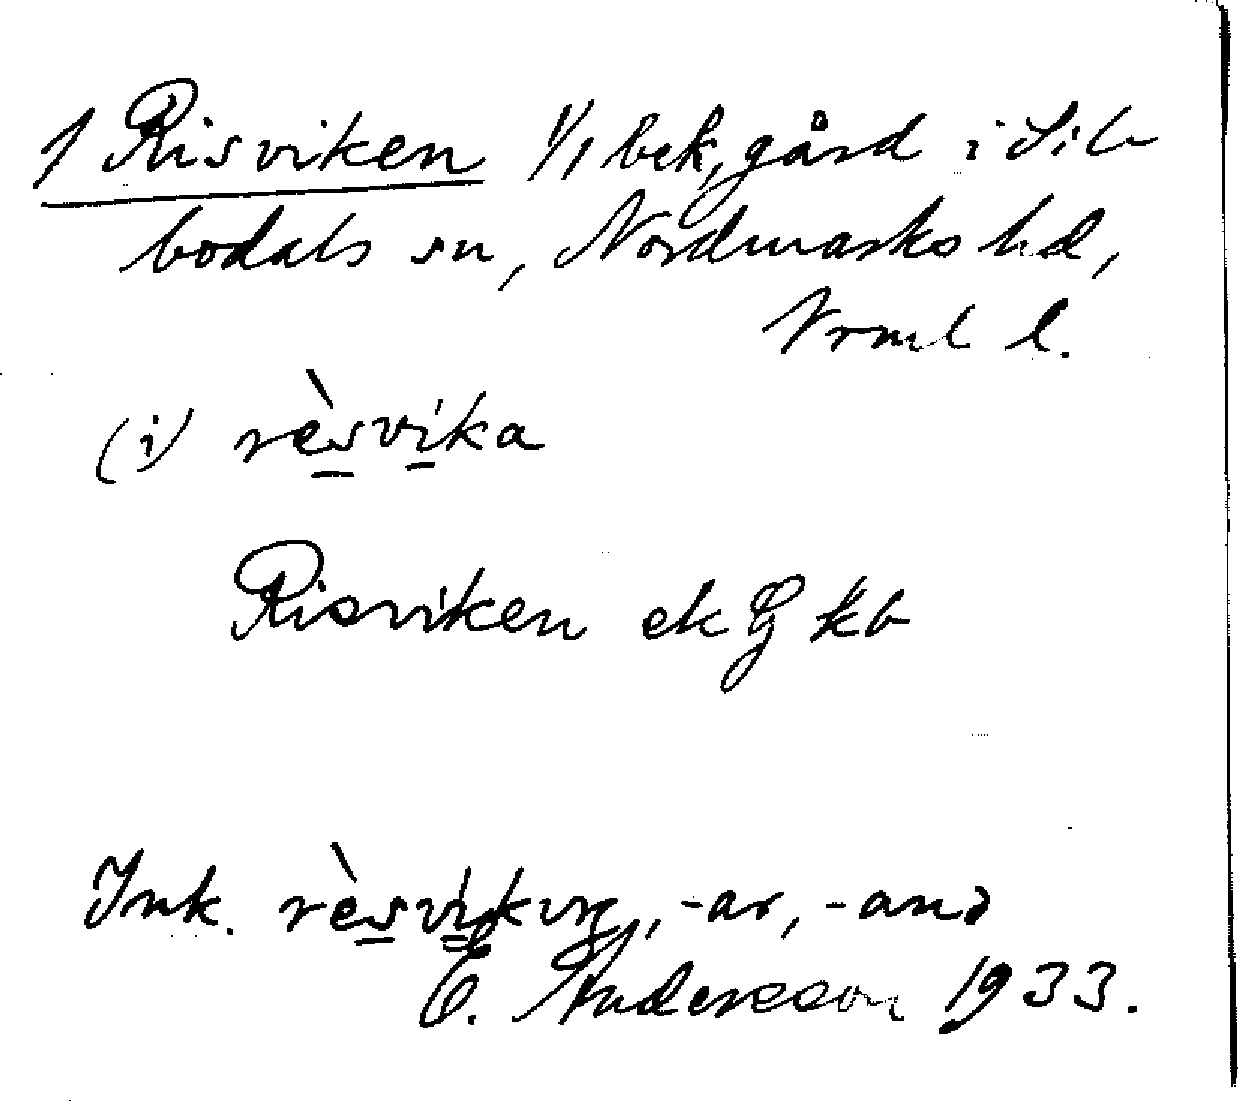 1 Risviken 1/1 bek, gård i Sil-
bodals sn, Nordmarks hd,
Vrml l.
(i) rèsvika
Risviken ek G kb
Ink. rèsvikvr, -ar, -anə
E. Andersson 1933.